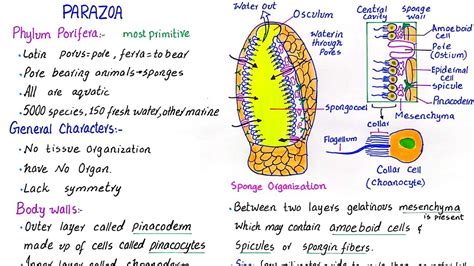 PARAZOA
Phylum Porifera:- most primitive
• Latin porus=pore, ferra=to bear
• Pore bearing animals→sponges
• All are aquatic
• 5000 species, 150 fresh water, other marine
General Characters:-
• No tissue Organization
• have No Organ.
• Lack symmetry
Body walls:-
• Outer layer called pinacoderm
made up of cells called pinacocytes
Water out
Osculum
water in
through
Pores
Spongocoel
Central
cavity
Sponge
wall
Amoeboid
cell
Pore
(Ostium)
Epidermal
cell
spicule
Pinacoderm
Mesenchyma
Collar
Flagellum
Collar Cell
(Choanocyte)
Sponge Organization
• Between two layers gelatinous mesenchyma
is present
which may contain amoeboid cells &
spicules or spongin fibers.